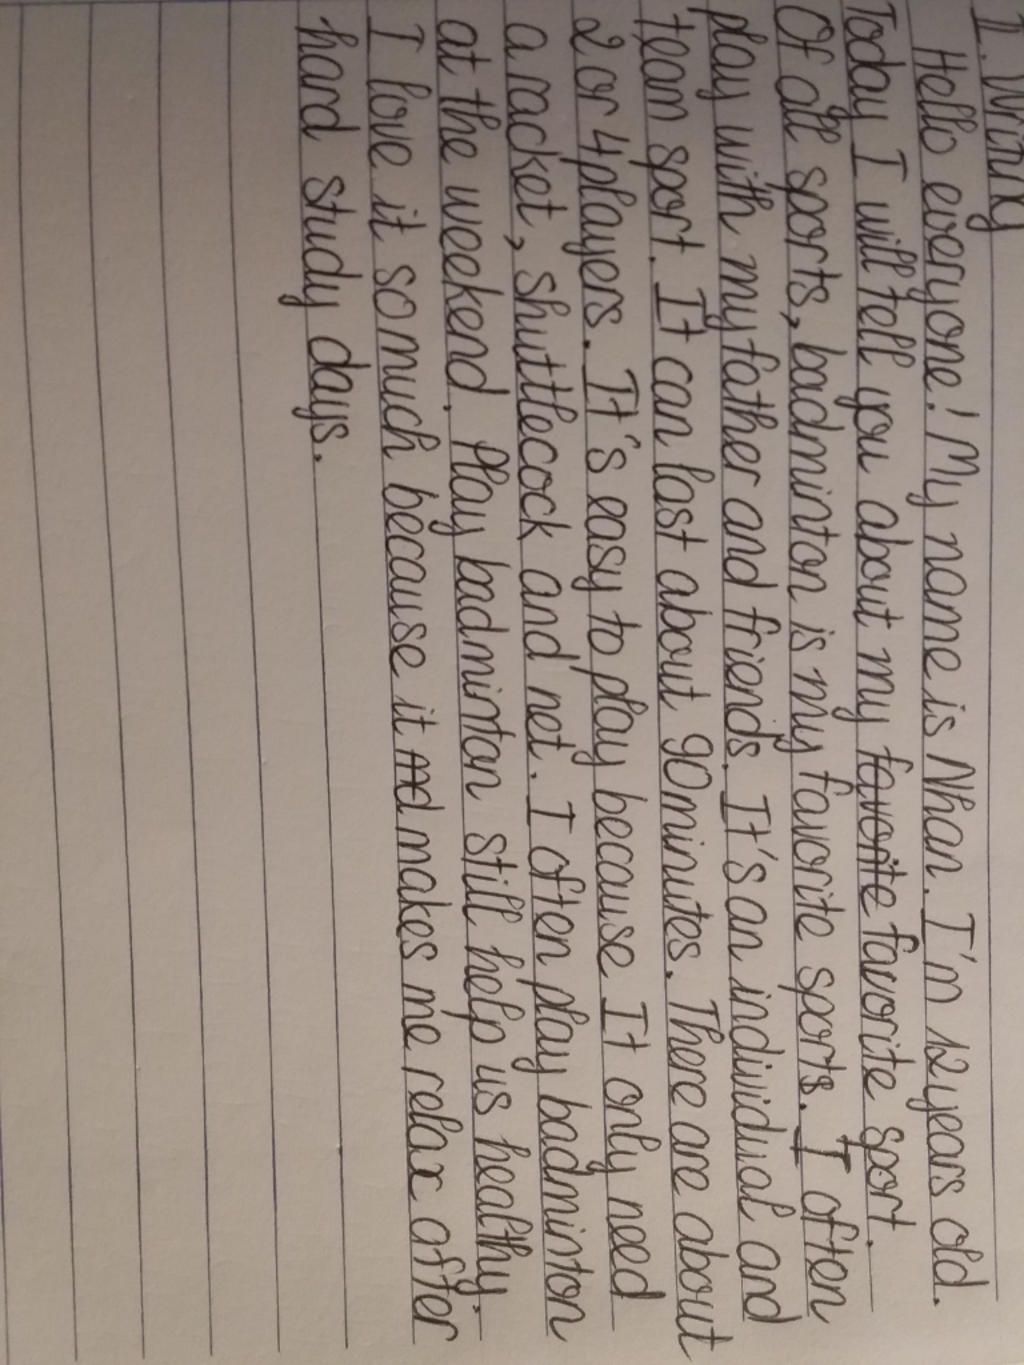 I. Writing
Hello everyone! My name is Nhan. I'm 12 years old.
Today I will tell you about my favorite favorite sport.
Of all sports, badminton is my favorite sports. I often
play with my father and friends. It's an individual and
team sport. It can last about 90 minutes. There are about
2 or 4 players. It's easy to play because It only need
a racket, shuttlecock and net. I often play badminton
at the weekend. Play badminton still help us healthy.
I love it so much because it makes me relax after
hard study days.